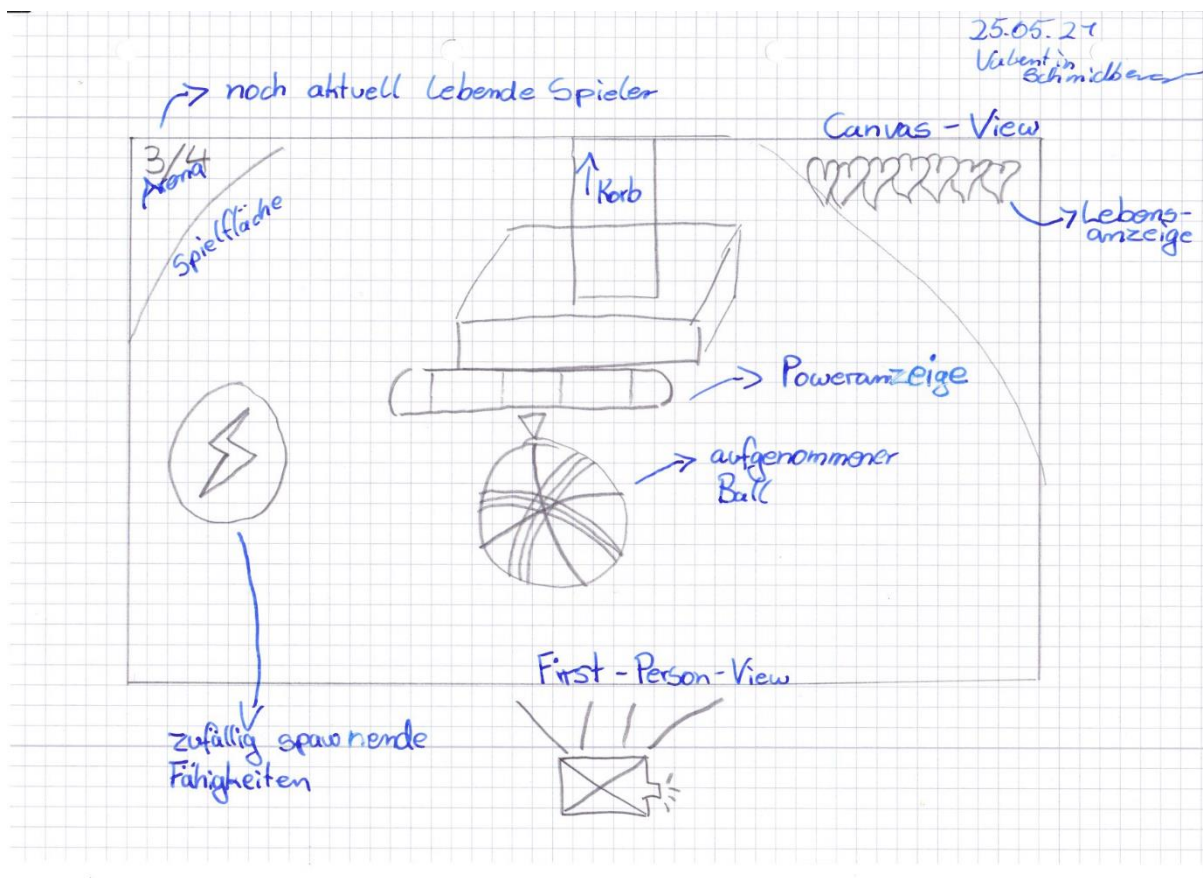 25.05.21
Valentin
noch aktuell lebende Spieler
Canvas - View
3/4
Arena
Spielfläche
Korb
Lebens-
anzeige
Poweranzeige
aufgenommener
Ball
First - Person - View
zufällig spawnende
Fähigkeiten